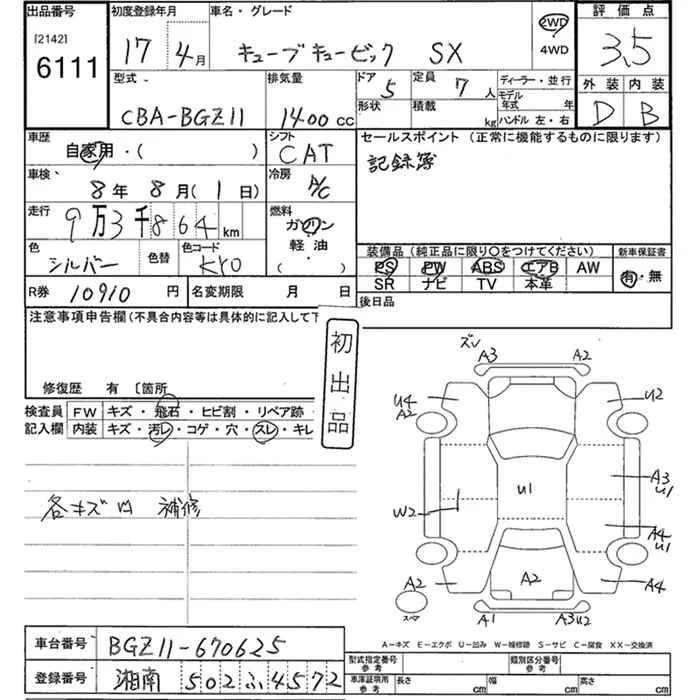 出品番号 初度登録年月 車名・グレード 評価点
[2142] 6111 17年 4月 キューブキュービック SX 2WD 4WD 3.5
型式 排気量 ドア 5 定員 7人 ディーラー・並行 外装 内装
CBA-BGZ11 1400cc 形状 積載 kg モデル年式 年 ハンドル 左・右 D B
車歴 自家用・( ) シフト CAT セールスポイント (正常に機能するものに限ります)
車検、 8年 8月( 1日) 冷房 A/C 記録簿
走行 9万3千864km 燃料 ガソリン 軽油・( )
色 シルバー 色替 色コード KY0
装備品(純正品に限り○をつけてください) 新車保証書
PS PW ABS エアB AW 有・無
SR ナビ TV 本革
R券 10910円 名変期限 月 日 後日品
注意事項申告欄(不具合内容等は具体的に記入して下
初出品
修復歴 有 〔箇所
検査員 FW キズ・飛石・ヒビ割・リペア跡・
記入欄 内装 キズ・汚レ・コゲ・穴・スレ・キレ
各キズ凹 補修
ズレ A3 A2
U4 A2 U2
U1 A3 U1
W2 A4 U1
A2 A2 A4
スペア A1 A3U2
A-キズ E-エクボ U-凹み W-補修跡 S-サビ C-腐食 XX-交換済
車台番号 BGZ11-670625 型式指定番号 参考 類別区分番号 参考
登録番号 湘南 502 ふ 4572 車庫証明用 参考 長さ cm 幅 cm 高さ cm